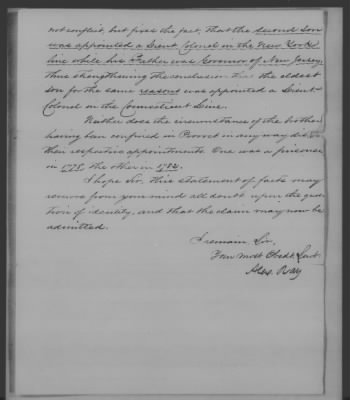 not conflict, but fixes the fact, that the second son
was appointed a Lieut Colonel in the New York
line while his Father was Governor of New Jersey,
thus strengthening the conclusion that the eldest
son for the same reasons was appointed a Lieut
Colonel on the Connecticut Line.
Neither does the circumstance of the brother
having been confined in Provost in any way
their respective appointments. One was a prisoner
in 1778 the other in 1782.
I hope Sir, this statement of facts may
remove from your mind all doubt upon the ques
tion of identity, and that the claim may now be
admitted.
I remain, Sir,
Your most Obedt Servt
Alex. Ray